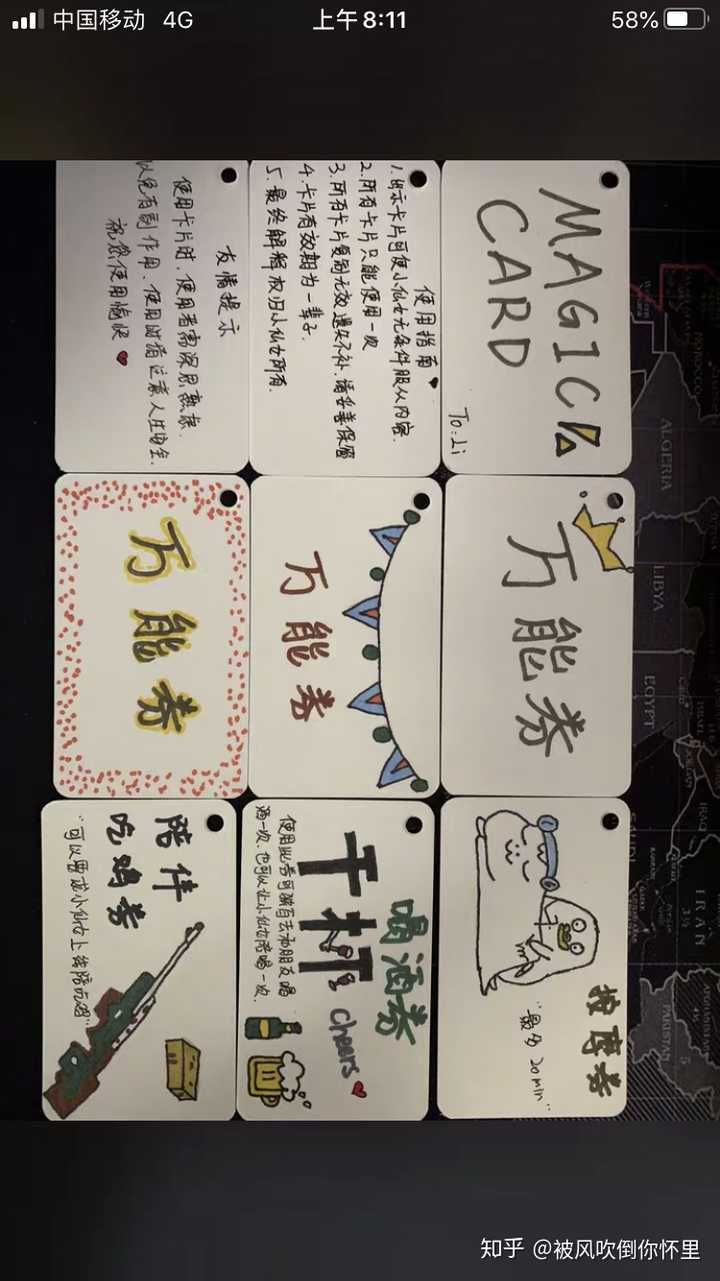 中国移动 4G
上午8:11
58%
MAGIC
CARD
To: Li
使用指南
1.出示卡片可使小仙女无条件服从内容.
2.所有卡片只能使用一次
3.所有卡片复制无效遗失不补.请妥善保管
4.卡片有效期为一辈子.
5.最终解释权归小仙女所有.
友情提示
使用卡片时,使用者需深思熟虑.
以免有副作用、使用时请注意人压安全.
祝您使用愉快
万能券
万能券
万能券
按摩券
"最多20min"
喝酒券
干杯
cheers
使用此券可独自去和朋友喝
酒一次.也可以让小仙女陪喝一次.
陪伴
吃鸡券
"可以要求小仙女上线陪吃鸡"
ALGERIA
LIBYA
EGYPT
IRAQ
IRAN
PAKISTAN
知乎 @被风吹倒你怀里